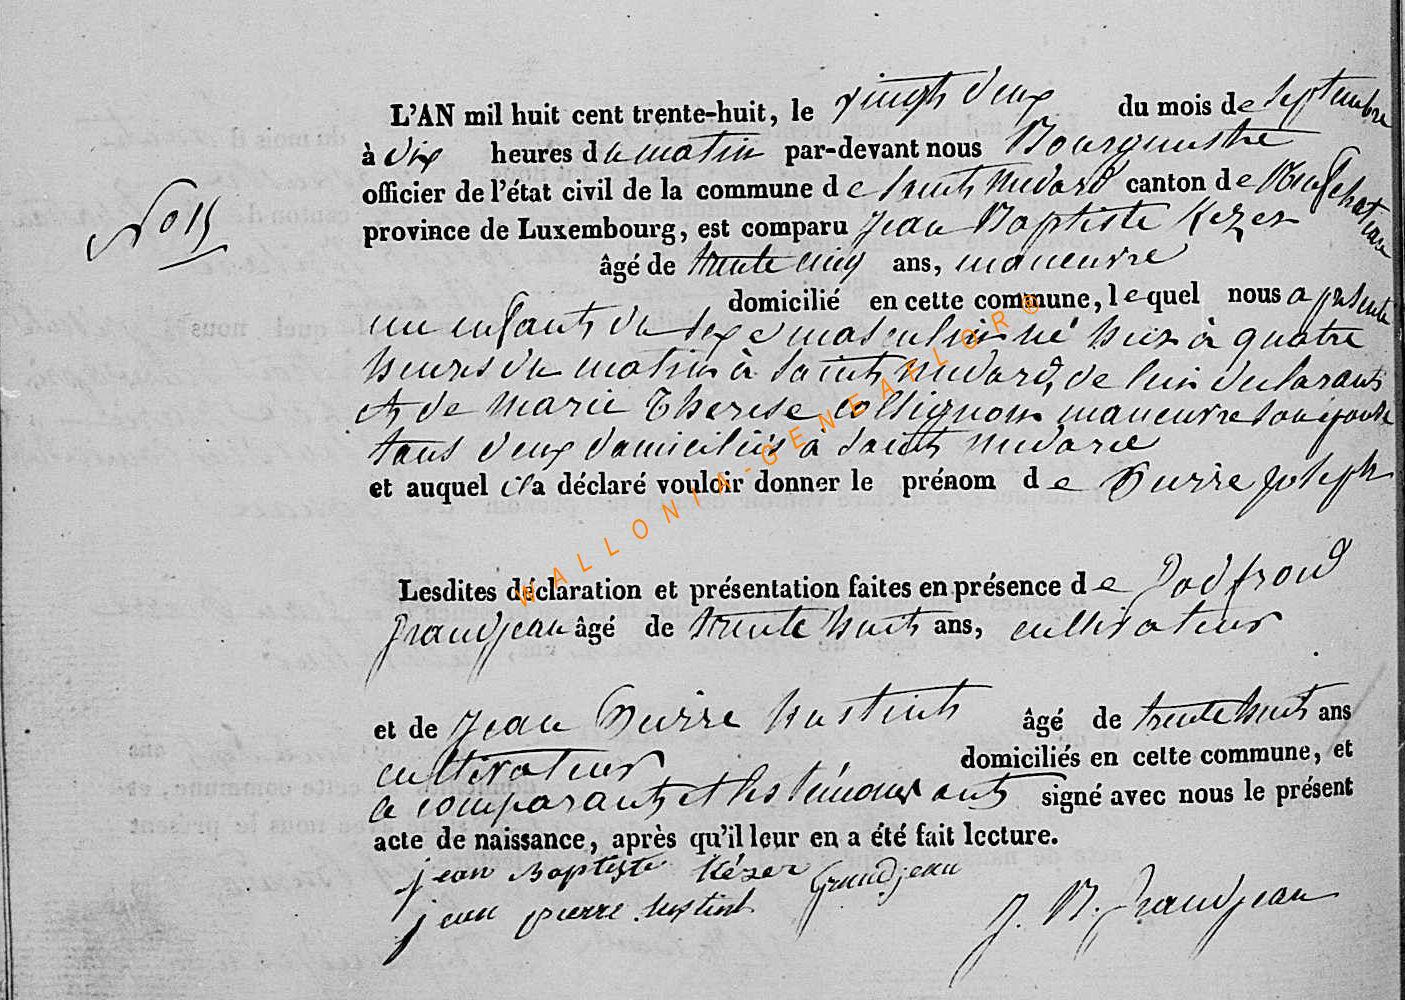 L'AN mil huit cent trente-huit, le vingts deux du mois de septembre
à dix heures du matin par-devant nous Bourgmestre
officier de l'état civil de la commune de Saints Medard canton de Neufchateau
No 15
province de Luxembourg, est comparu Jean Baptiste Kezer
âgé de trente cinq ans, maneuvre
domicilié en cette commune, lequel nous a présenté
un enfants du sexe masculin né hier à quatre
heures du matin à Saints Medard, de lui declarants
et de Marie Therese Collignon maneuvre son épouse
tous deux domiciliés à Saints Medard
et auquel il a déclaré vouloir donner le prénom de Pierre Joseph
WALLONIA-GENEALOR®
Lesdites déclaration et présentation faites en présence de Godfroid
Grandjean âgé de trente huits ans, cultivateur
et de Jean Pierre Hustints âgé de trente huits ans
cultivateur domiciliés en cette commune, et
le comparants et les témoins onts signé avec nous le présent
acte de naissance, après qu'il leur en a été fait lecture.
jean Baptiste Kézer Grandjean
jean pierre hustint J. B. Grandjean